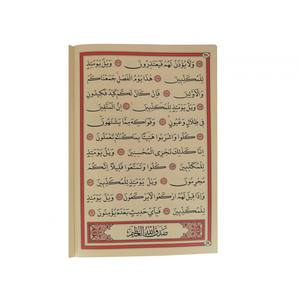 وَلَا يُؤْذَنُ لَهُمْ فَيَعْتَذِرُونَ وَيْلٌ يَوْمَئِذٍ
لِلْمُكَذِّبِينَ هَذَا يَوْمُ الْفَصْلِ جَمَعْنَاكُمْ
وَالْأَوَّلِينَ فَإِنْ كَانَ لَكُمْ كَيْدٌ فَكِيدُونِ
وَيْلٌ يَوْمَئِذٍ لِلْمُكَذِّبِينَ إِنَّ الْمُتَّقِينَ
فِي ظِلَالٍ وَعُيُونٍ وَفَوَاكِهَ مِمَّا يَشْتَهُونَ
كُلُوا وَاشْرَبُوا هَنِيئًا بِمَا كُنْتُمْ تَعْمَلُونَ
إِنَّا كَذَلِكَ نَجْزِي الْمُحْسِنِينَ وَيْلٌ يَوْمَئِذٍ
لِلْمُكَذِّبِينَ كُلُوا وَتَمَتَّعُوا قَلِيلًا إِنَّكُمْ
مُجْرِمُونَ وَيْلٌ يَوْمَئِذٍ لِلْمُكَذِّبِينَ
وَإِذَا قِيلَ لَهُمُ ارْكَعُوا لَا يَرْكَعُونَ وَيْلٌ يَوْمَئِذٍ
لِلْمُكَذِّبِينَ فَبِأَيِّ حَدِيثٍ بَعْدَهُ يُؤْمِنُونَ
صدق الله العظيم